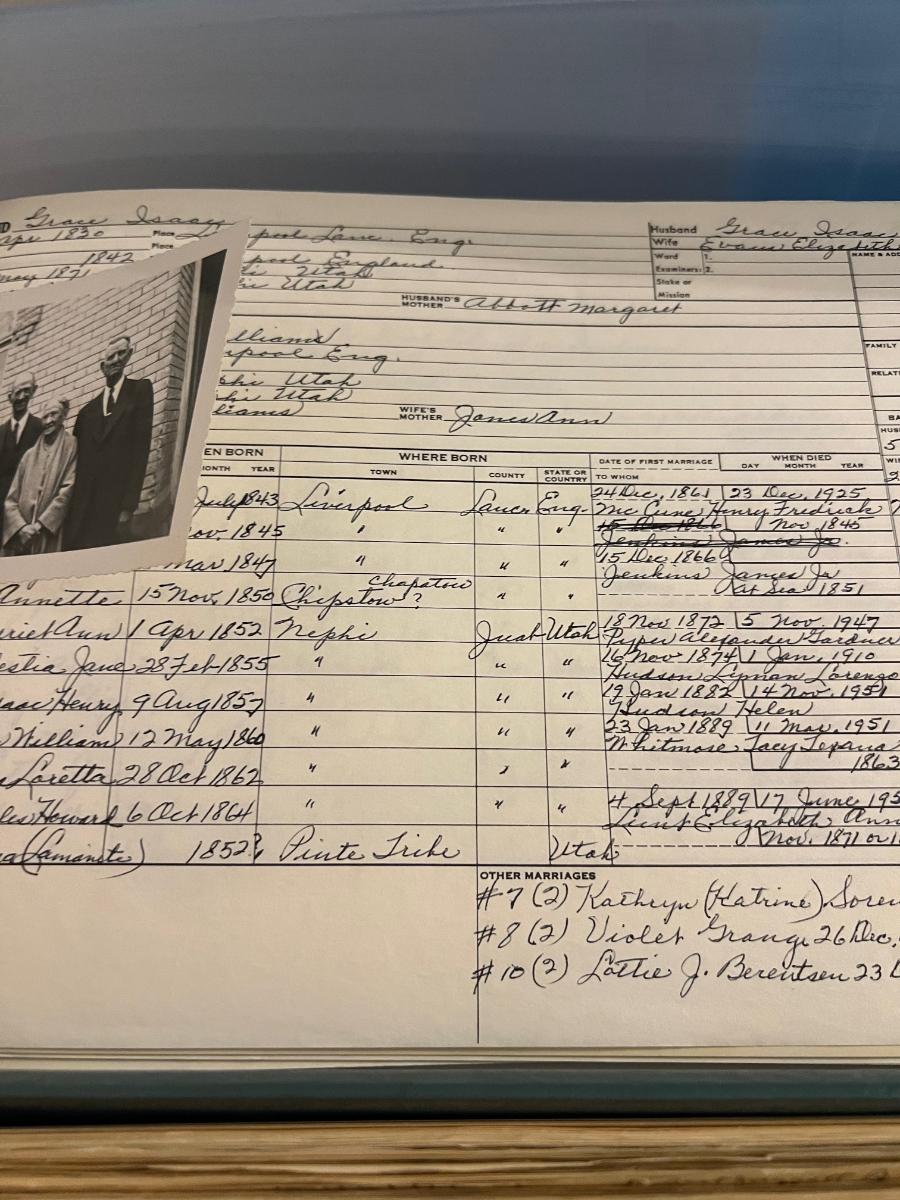 Grace Isaac
Husband Grace Isaac
Apr 1830 Place pool Lanc. Eng.
Wife Evans Elizabeth
1842 Place pool England.
Ward 1.
Examiners: 2.
NAME & ADD
May 1871 hi Utah
hi Utah
Stake or
Mission
HUSBAND'S MOTHER Abbott Margaret
lliams
rpool Eng.
FAMILY
phi Utah
phi Utah
RELATI
lliams WIFE'S MOTHER Jones Ann
EN BORN WHERE BORN DATE OF FIRST MARRIAGE WHEN DIED
MONTH YEAR TOWN COUNTY STATE OR COUNTRY TO WHOM DAY MONTH YEAR
July 1843 Liverpool Lancs Eng. 24 Dec. 1861 23 Dec. 1925
Mc Cune Henry Fredrick
ov. 1845 " " " 15 Dec 1866 Nov. 1845
Jenkins James Jr.
Mar 1847 " " " 15 Dec 1866
Jenkins James Jr
Chapstow
Annette 15 Nov. 1850 Chipstow? " " At Sea 1851
riet Ann 1 Apr 1852 Nephi Juab Utah 18 Nov 1872 5 Nov. 1947
Pyper Alexander Gardner
estia Jane 28 Feb 1855 " " " 16 Nov 1874 1 Jan. 1910
Hudson Lipman Lorenzo
saac Henry 9 Aug 1857 " " " 19 Jan 1882 14 Nov. 1951
Hudson Helen
William 12 May 1860 " " " 23 Jan 1889 11 Mar. 1951
Whitmore
Loretta 28 Oct 1862 " " " 1863
les Howard 6 Oct 1864 " " " 4 Sept 1889 17 June 195
Lunt Elizabeth Ann
a (Lamanite) 1852? Piute Tribe Utah Nov. 1871 or 1
OTHER MARRIAGES
#7 (2) Kathryn (Katrine) Soren
#8 (2) Violet Grange 26 Dec.
#10 (2) Lottie J. Berentsen 23 D